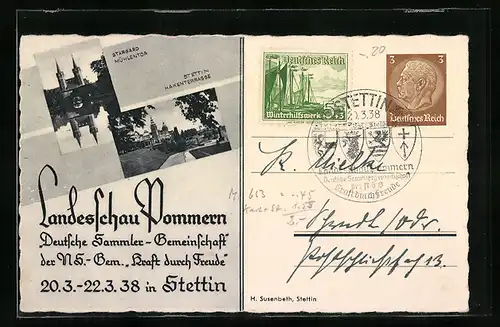 STARGARD
MÜHLENTOR
STETTIN
HAKENTERRASSE
Landesschau Pommern
Deutsche Sammler-Gemeinschaft
der N.S.-Gem. „Kraft durch Freude"
20.3.-22.3.38 in Stettin
Deutsches Reich
Winterhilfswerk 5+3
3 3
Deutsches Reich
-.20
STETTIN
20.3.38
Pommern
Kraft durch Freude
K. Mielke
M 653
Schwedt/Oder.
H. Susenbeth, Stettin